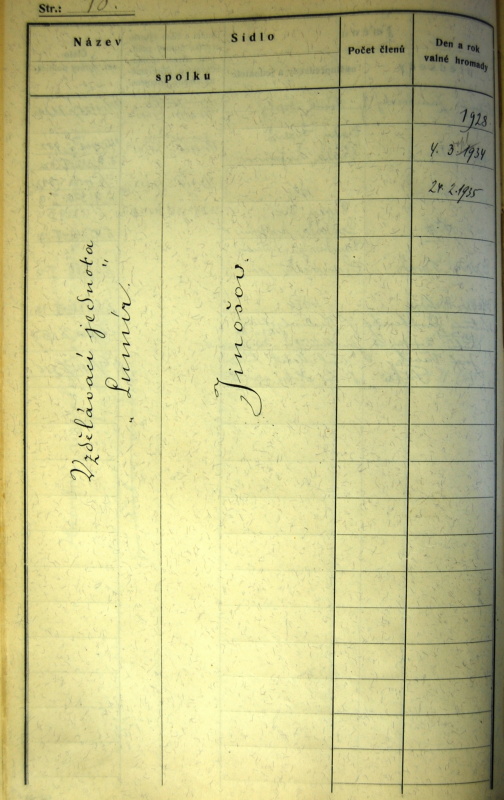 Str.:
Název
Sídlo
spolku
Počet členů
Den a rok
valné hromady
1928
4. 3. 1934
24. 2. 1935
Vzdělávací jednota
„Lumír"
Jinošov.